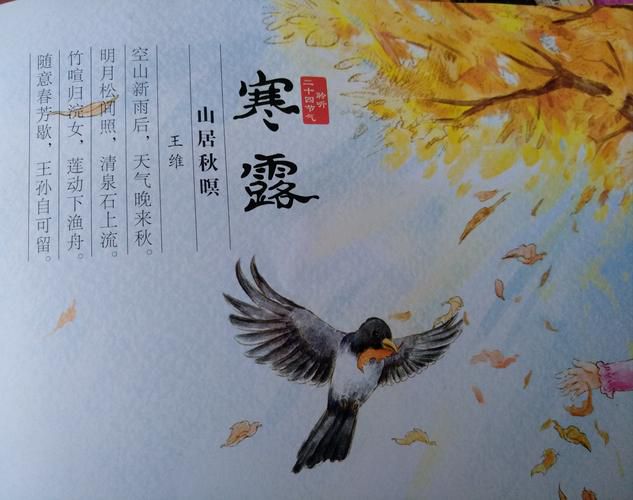 聆听
二十四节气
寒露
山居秋暝
王维
空山新雨后，天气晚来秋。
明月松间照，清泉石上流。
竹喧归浣女，莲动下渔舟。
随意春芳歇，王孙自可留。